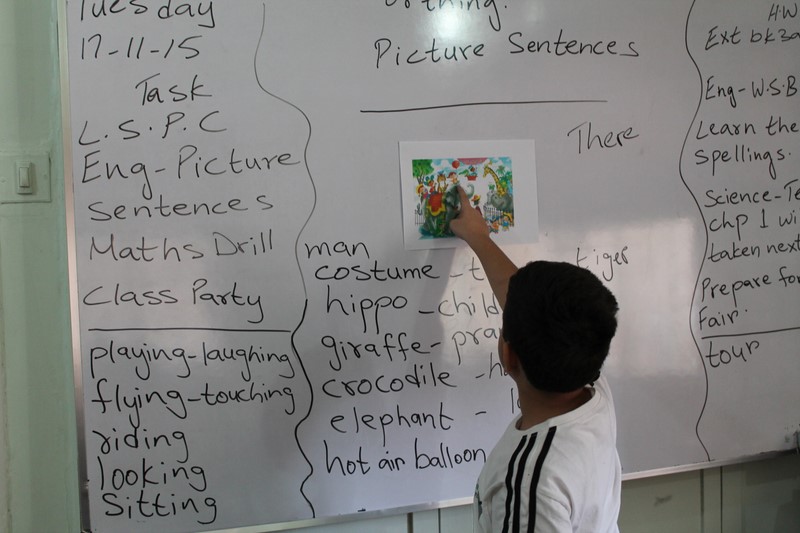 Tuesday
17-11-15
Task
L.S.P.C
Eng-Picture
sentences
Maths Drill
Class Party
playing-laughing
flying-touching
riding
looking
Sitting
Picture Sentences
There
man
costume - tiger
hippo - child
giraffe -
crocodile -
elephant -
hot air balloon
HW
Ext bk3a
Eng- W.S.B
Learn the
spellings.
Science-
chp 1
taken next
Prepare for
Fair.
tour